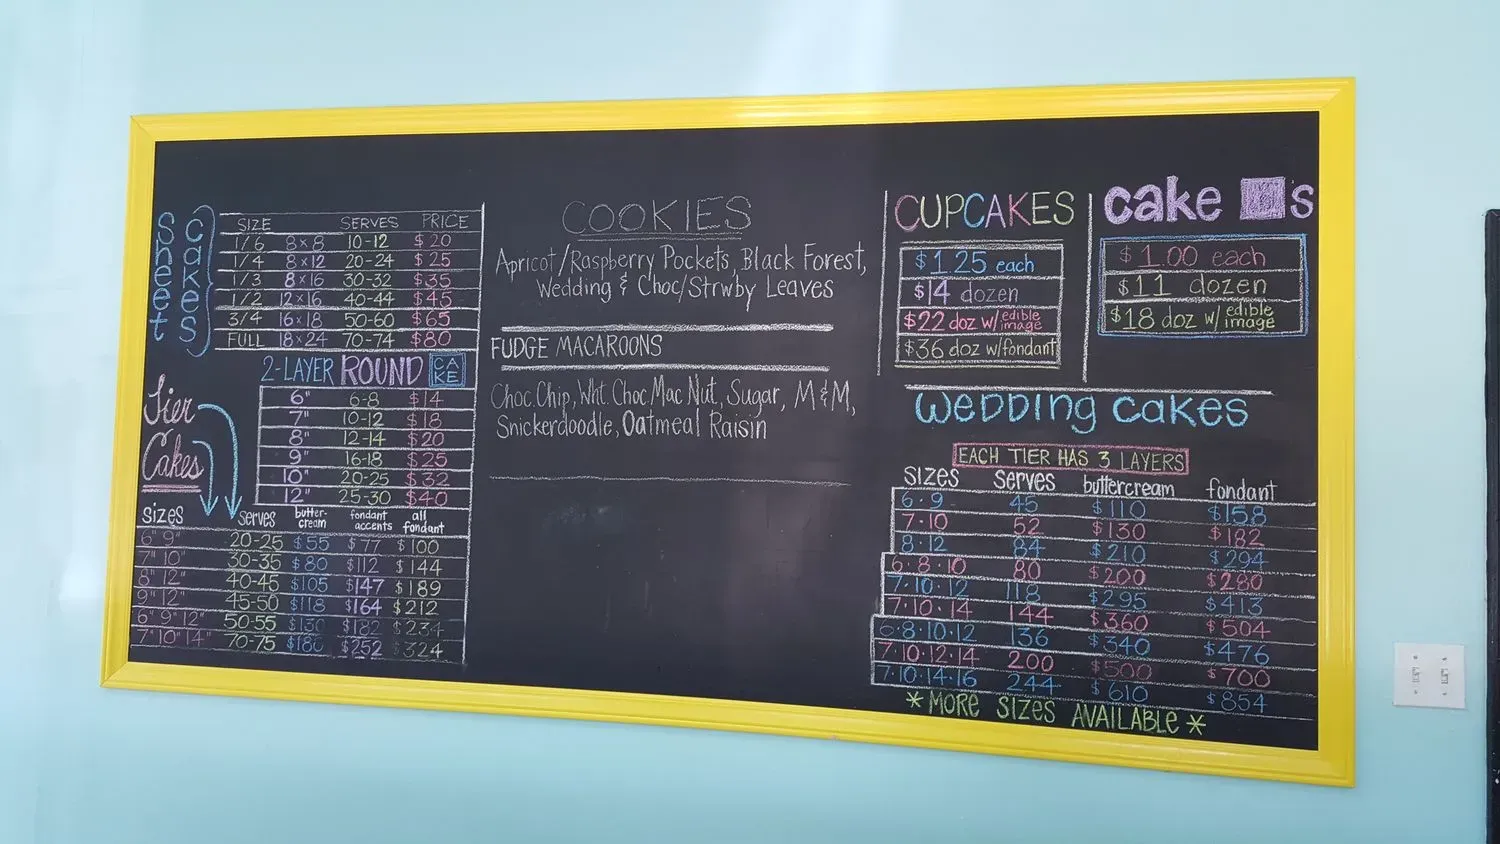 Sheet Cakes
SIZE SERVES PRICE
1/6 8×8 10-12 $20
1/4 8×12 20-24 $25
1/3 8×16 30-32 $35
1/2 12×16 40-44 $45
3/4 16×18 50-60 $65
FULL 18×24 70-74 $80
2-LAYER ROUND CAKE
6" 6-8 $14
7" 10-12 $18
8" 12-14 $20
9" 16-18 $25
10" 20-25 $32
12" 25-30 $40
Tier
Cakes
SIZES serves butter-cream fondant accents all fondant
6" 9" 20-25 $55 $77 $100
7" 10" 30-35 $80 $112 $144
8" 12" 40-45 $105 $147 $189
9" 12" 45-50 $118 $164 $212
6" 9" 12" 50-55 $130 $182 $234
7" 10" 14" 70-75 $180 $252 $324
COOKIES
Apricot/Raspberry Pockets, Black Forest,
Wedding & Choc/Strwby Leaves
FUDGE MACAROONS
Choc.Chip, Wht. Choc Mac Nut, Sugar, M&M,
Snickerdoodle, Oatmeal Raisin
CUPCAKES
$1.25 each
$14 dozen
$22 doz w/ edible image
$36 doz w/fondant
cake 's
$1.00 each
$11 dozen
$18 doz w/ edible image
Wedding cakes
EACH TIER HAS 3 LAYERS
SIZES Serves buttercream fondant
6·9 45 $110 $158
7·10 52 $130 $182
8·12 84 $210 $294
6·8·10 80 $200 $280
7·10·12 118 $295 $413
7·10·14 144 $360 $504
6·8·10·12 136 $340 $476
7·10·12·14 200 $500 $700
7·10·14·16 244 $610 $854
*MORE SIZES AVAILABLE*